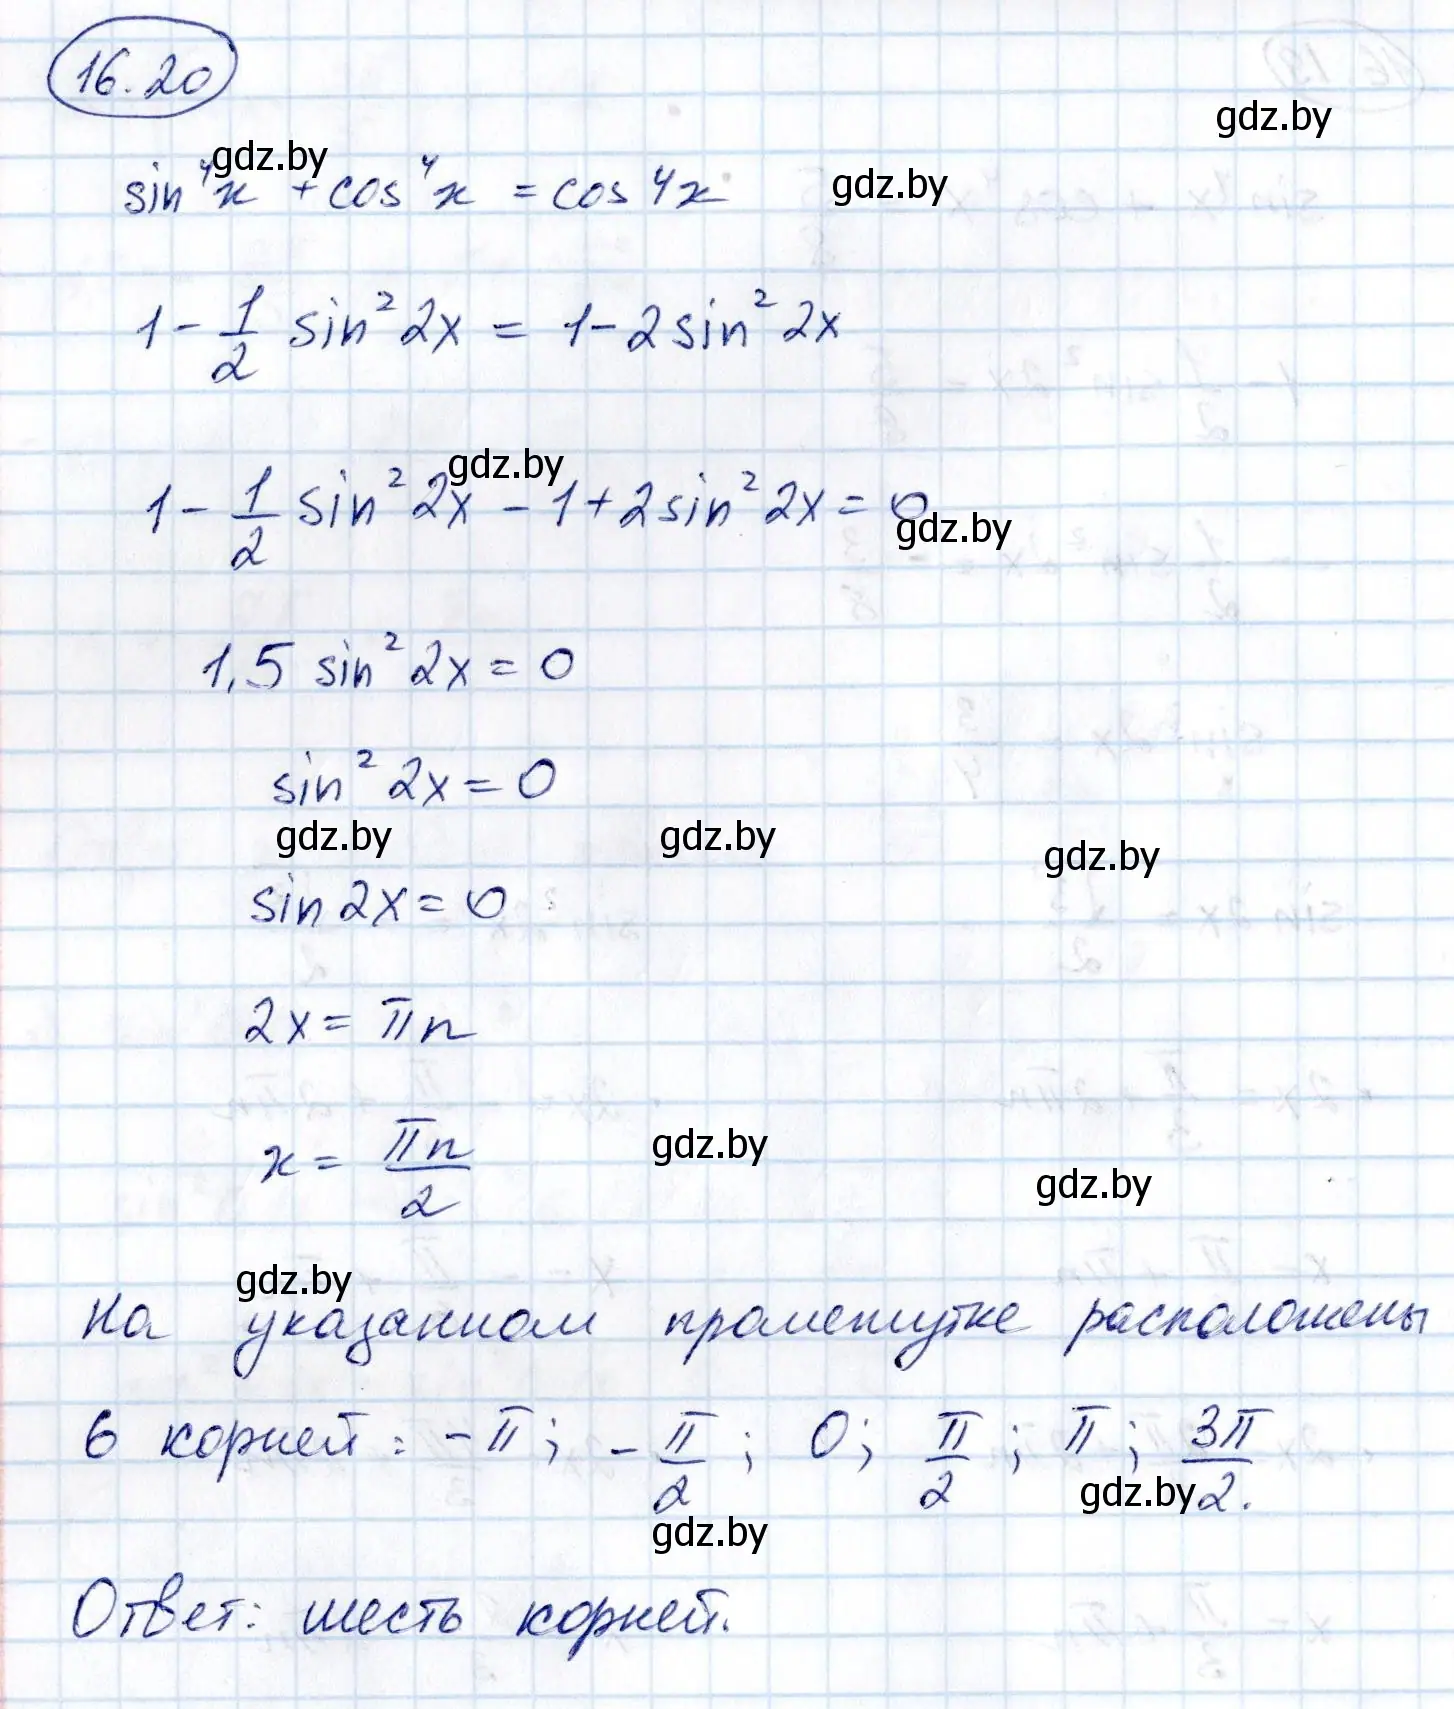 16.20
gdz.by
gdz.by
sin⁴x + cos⁴x = cos 4x
gdz.by
1 - 1/2 sin² 2x = 1 - 2 sin² 2x
gdz.by
1 - 1/2 sin² 2x - 1 + 2 sin² 2x = 0
gdz.by
1,5 sin² 2x = 0
sin² 2x = 0
gdz.by gdz.by gdz.by
sin 2x = 0
2x = πn
x = πn/2
gdz.by
gdz.by
gdz.by
На указанном промежутке расположены
6 корней: -π; -π/2; 0; π/2; π; 3π/2.
gdz.by
gdz.by
Ответ: шесть корней.